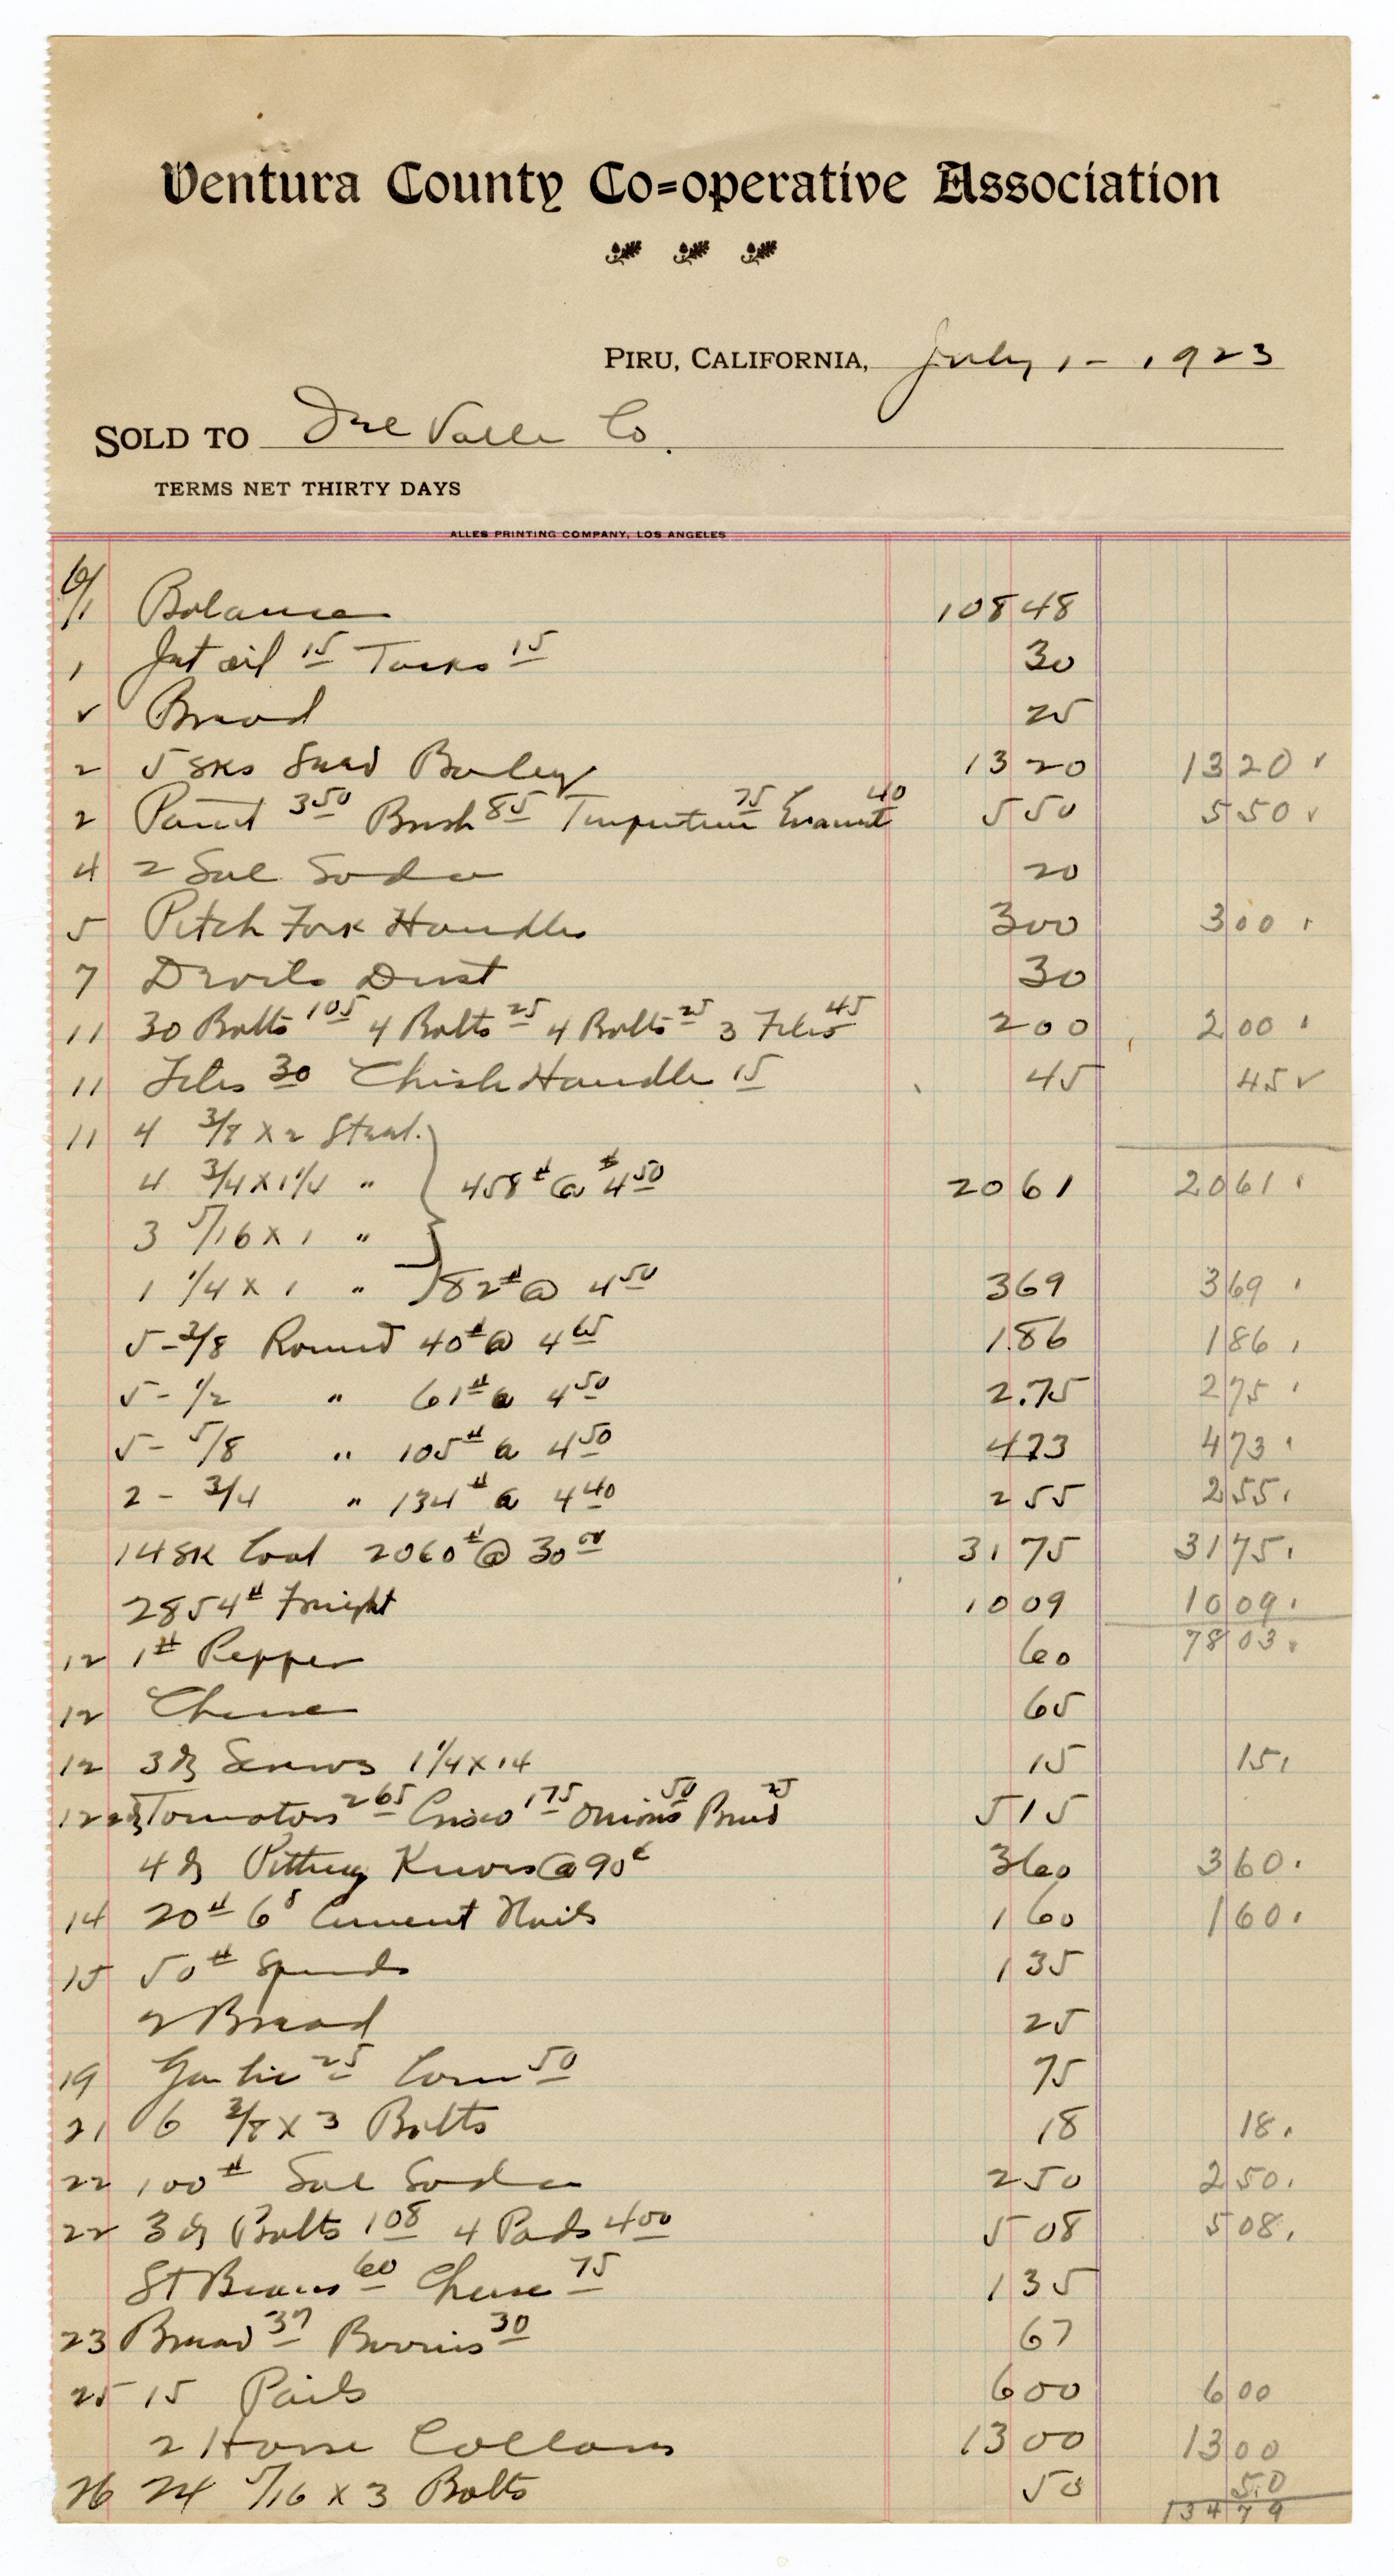 Ventura County Co=operative Association
PIRU, CALIFORNIA, July 1 - 1923
SOLD TO Del Valle Co.
TERMS NET THIRTY DAYS
ALLES PRINTING COMPANY, LOS ANGELES
6/1 Balance 108 48
1 Jet oil 15 Tacks 15 30
✓ Bread 25
2 5 sks Seed Barley 13 20 13 20 ✓
2 Paint 3 50 Brush 85 Turpentine 75 Enamel 40 5 50 5 50 ✓
4 2 Sal Soda 20
5 Pitch Fork Handles 3 00 3 00
7 Devils Dust 30
11 30 Bolts 1 05 4 Bolts 25 4 Bolts 25 3 Files 45 2 00 2 00
11 Files 30 Chisle Handle 15 45 45 ✓
11 4 3/8 x 2 Steel.
4 3/4 x 1 1/4 " 458# @ $4 50 20 61 20 61
3 5/16 x 1 "
1 1/4 x 1 " 82# @ 4 50 3 69 3 69
5 - 3/8 Round 40# @ 4 65 1.86 1 86
5 - 1/2 " 61# @ 4 50 2.75 2 75
5 - 5/8 " 105# @ 4 50 4 73 4 73
2 - 3/4 " 134# @ 4 40 2 55 2 55
14 sk Coal 2060# @ 30 00 31 75 31 75
2854# Freight 10 09 10 09
78 03
12 1# Pepper 60
12 Cheese 65
12 3 dz Screws 1 1/4 x 14 15 15
12 Tomatoes 2 65 Crisco 1 75 Onions 50 Bread 25 5 15
4 dz Pitting Knives @ 90¢ 3 60 3 60
14 20# 6d Cement Nails 1 60 1 60
15 50# Spuds 1 35
2 Bread 25
19 Garlic 25 Corn 50 75
21 6 3/8 x 3 Bolts 18 18
22 100# Sal Soda 2 50 2 50
22 3 dz Bolts 1 08 4 Pads 4 00 5 08 5 08
St Beans 60 Cheese 75 1 35
23 Bread 37 Berries 30 67
25 15 Pails 6 00 6 00
2 Horse Collars 13 00 13 00
26 24 5/16 x 3 Bolts 50 50
134 79